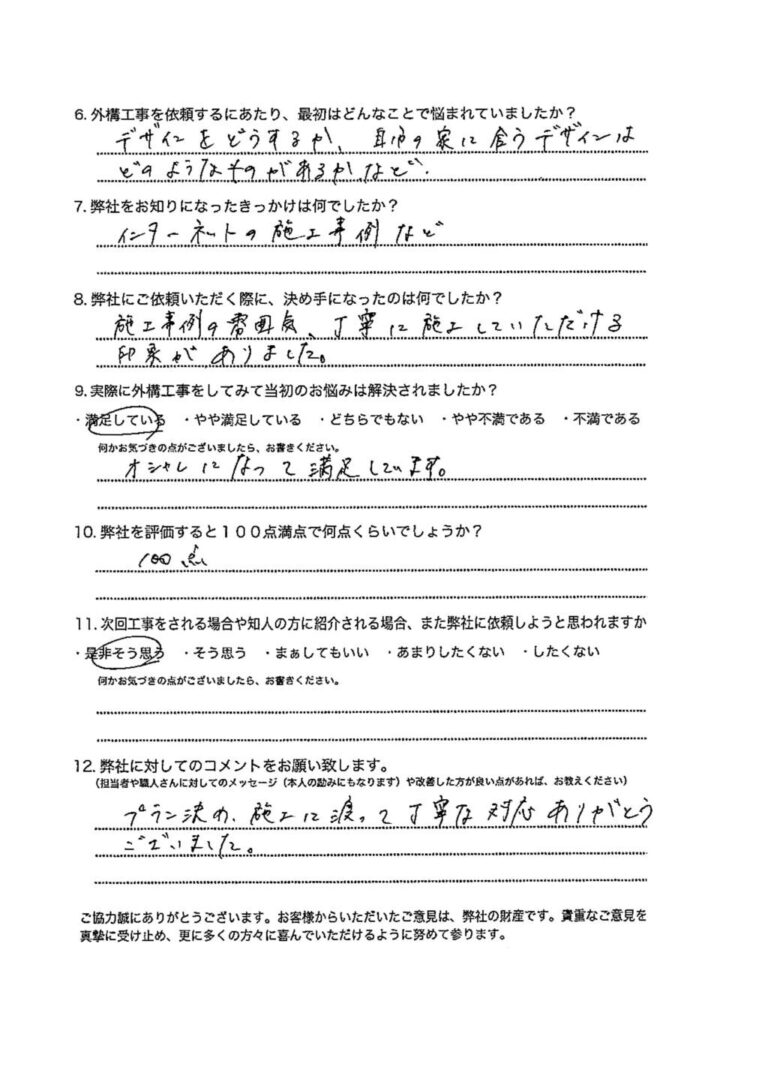 6. 外構工事を依頼するにあたり、最初はどんなことで悩まれていましたか？
デザインをどうするか、自分の家に合うデザインは
どのようなものがあるかなど。
7. 弊社をお知りになったきっかけは何でしたか？
インターネットの施工事例など
8. 弊社にご依頼いただく際に、決め手になったのは何でしたか？
施工事例の雰囲気、丁寧に施工していただける
印象がありました。
9. 実際に外構工事をしてみて当初のお悩みは解決されましたか？
・満足している ・やや満足している ・どちらでもない ・やや不満である ・不満である
何かお気づきの点がございましたら、お書きください。
オシャレになって満足しています。
10. 弊社を評価すると１００点満点で何点くらいでしょうか？
100点
11. 次回工事をされる場合や知人の方に紹介される場合、また弊社に依頼しようと思われますか
・是非そう思う ・そう思う ・まぁしてもいい ・あまりしたくない ・したくない
何かお気づきの点がございましたら、お書きください。
12. 弊社に対してのコメントをお願い致します。
（担当者や職人さんに対してのメッセージ（本人の励みにもなります）や改善した方が良い点があれば、お教えください）
プラン決め、施工に渡って丁寧な対応ありがとう
ございました。
ご協力誠にありがとうございます。お客様からいただいたご意見は、弊社の財産です。貴重なご意見を
真摯に受け止め、更に多くの方々に喜んでいただけるように努めて参ります。